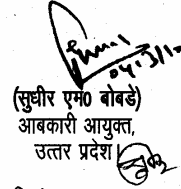 (सुधीर एम0 बोबडे)
आबकारी आयुक्त,
उत्तर प्रदेश।